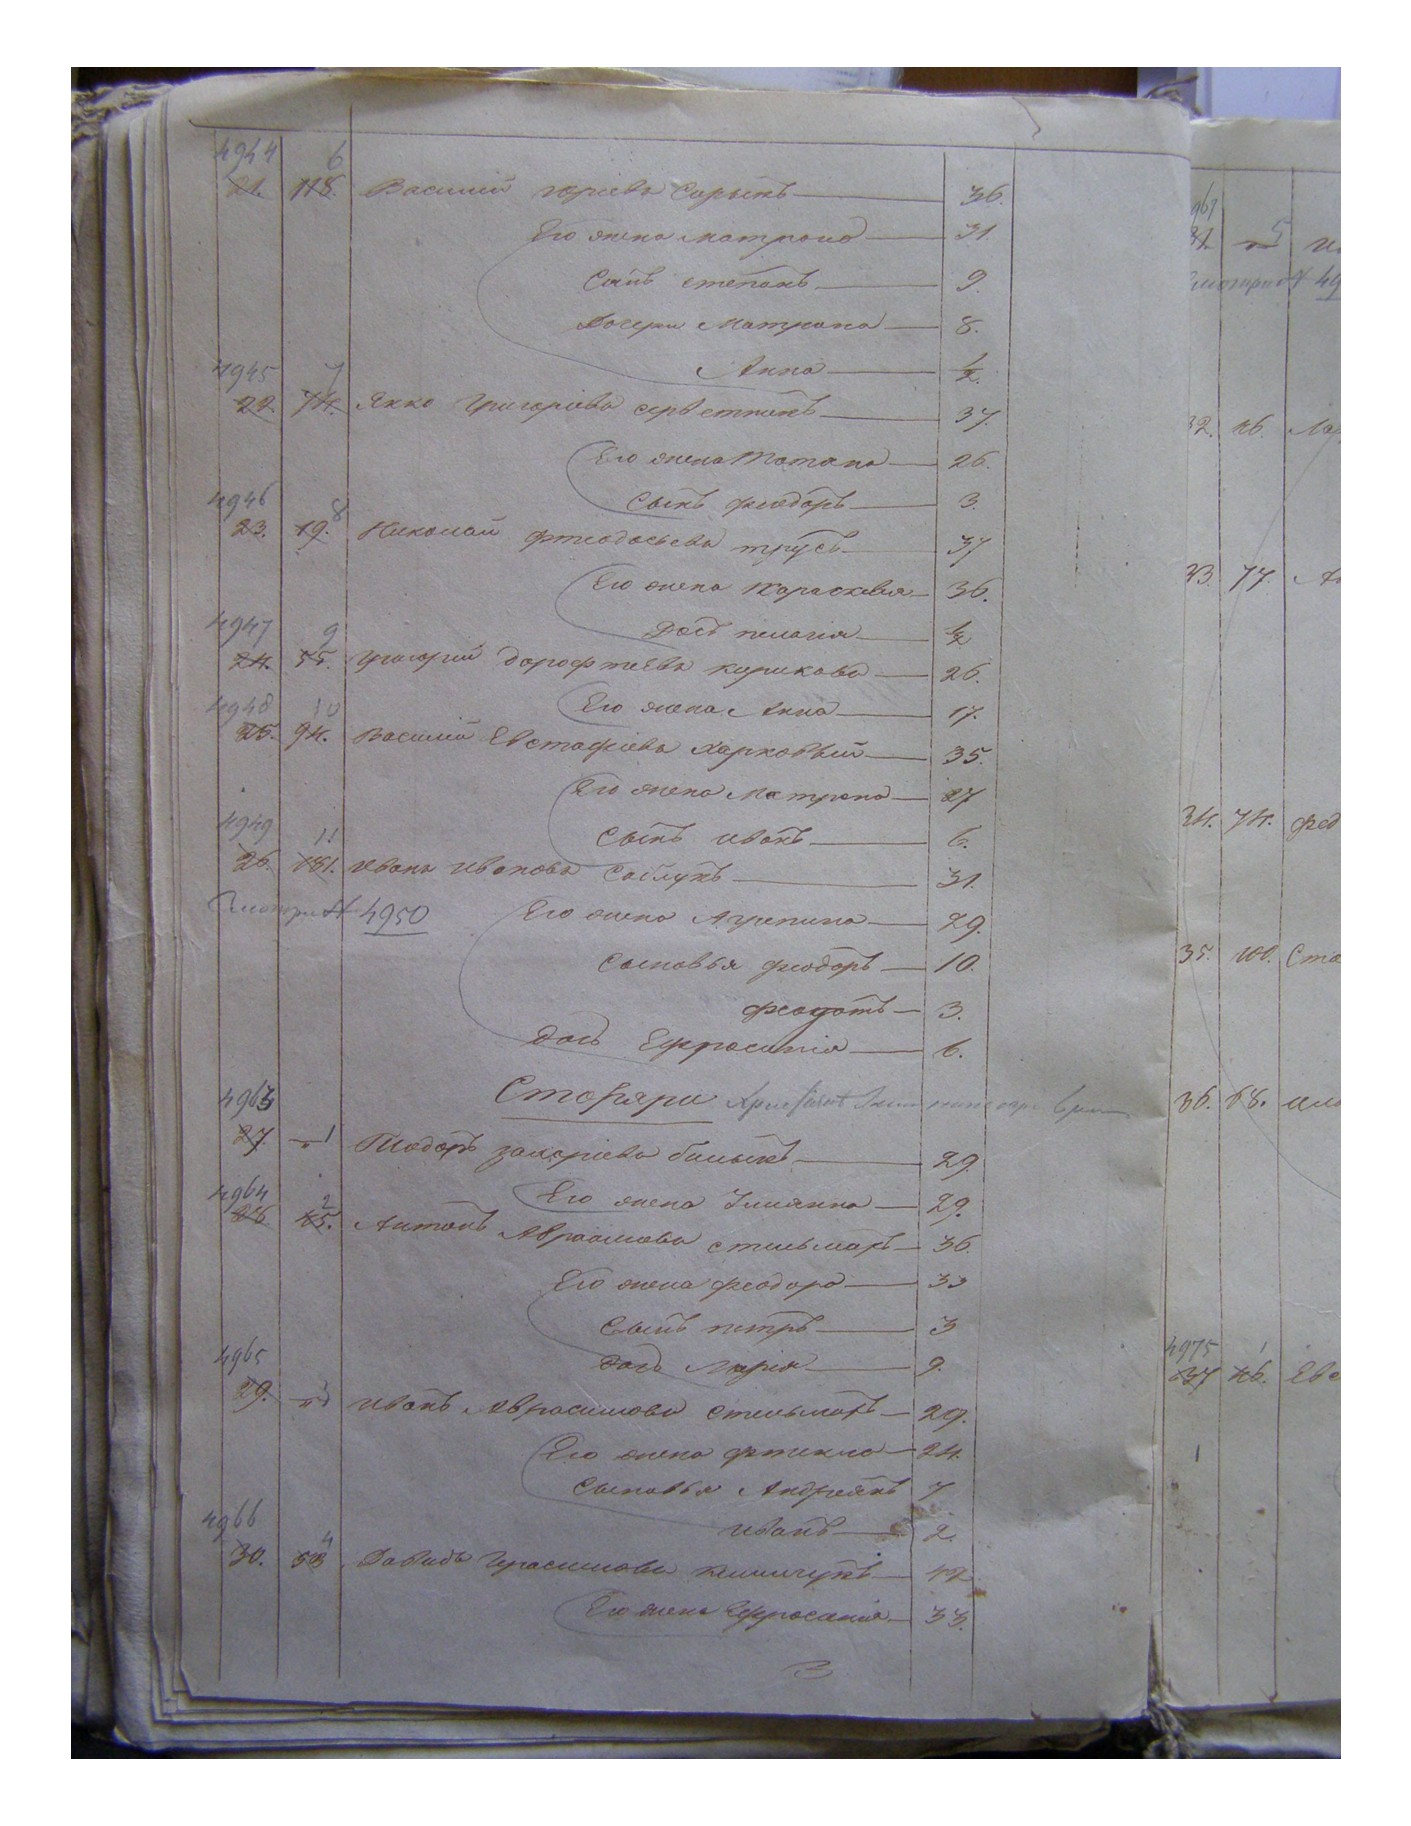 4944 6
21. 118. Василий Юрьевъ 36.
Его жена Матрона 31
Сынъ Степанъ 9.
Дочери Матрона 8.
Анна ½
4945 7
22. 74. Якко Григорьевъ 37.
Его жена Татана 26.
Сынъ Феодоръ 3.
4946 8
23. 19. Николай Фтеодосьевъ Трусъ 37
Его жена Параскевия 36.
Дочь Пелагия ½
4947 9
24. 55. Григорий Дорофтеевъ 26.
Его жена Анна 17.
4948 10
25. 94. Василий Евстафиевъ Харковый 35.
Его жена Матрона 27
Сынъ Иванъ 6.
4949 11
26. 181. Иванъ Ивановъ Саблукъ 31.
Смотри № 4950
Его жена Агрепина 29.
Сыновья Феодоръ 10.
Феодотъ 3.
Дочь Ефросиния 6.
Столяри
4963
27. 1 Тодоръ Захариевъ Билыкъ 29.
Его жена Улиянна 29.
4964 2
28. Антонъ Авраамовъ Стельмахъ 36.
Его жена Феодора 33
Сынъ Петръ 3
Дочь Мария 9.
4965
29. 3 Иванъ Стельмахъ 29.
Его жена Фтекла 24.
Сыновья Андреянъ 7
Иванъ 2
4966 4
30. 58 Давидъ Герасимовъ 42
Его жена Ефросиния 33.
31. 5
32.
33. 77.
34. 74. Фед
35. 100. Ста
36. 68.
4975 1
37 Евс